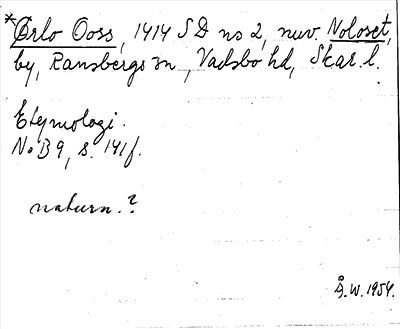 *Orlo Ooss, 1414 SD ns 2, nuv. Noloset,
by, Ransbergs sn, Vadsbo hd, Skar. l.
Etymologi.
NoB 9, s. 141f.
naturn.?
Å.W. 1954.